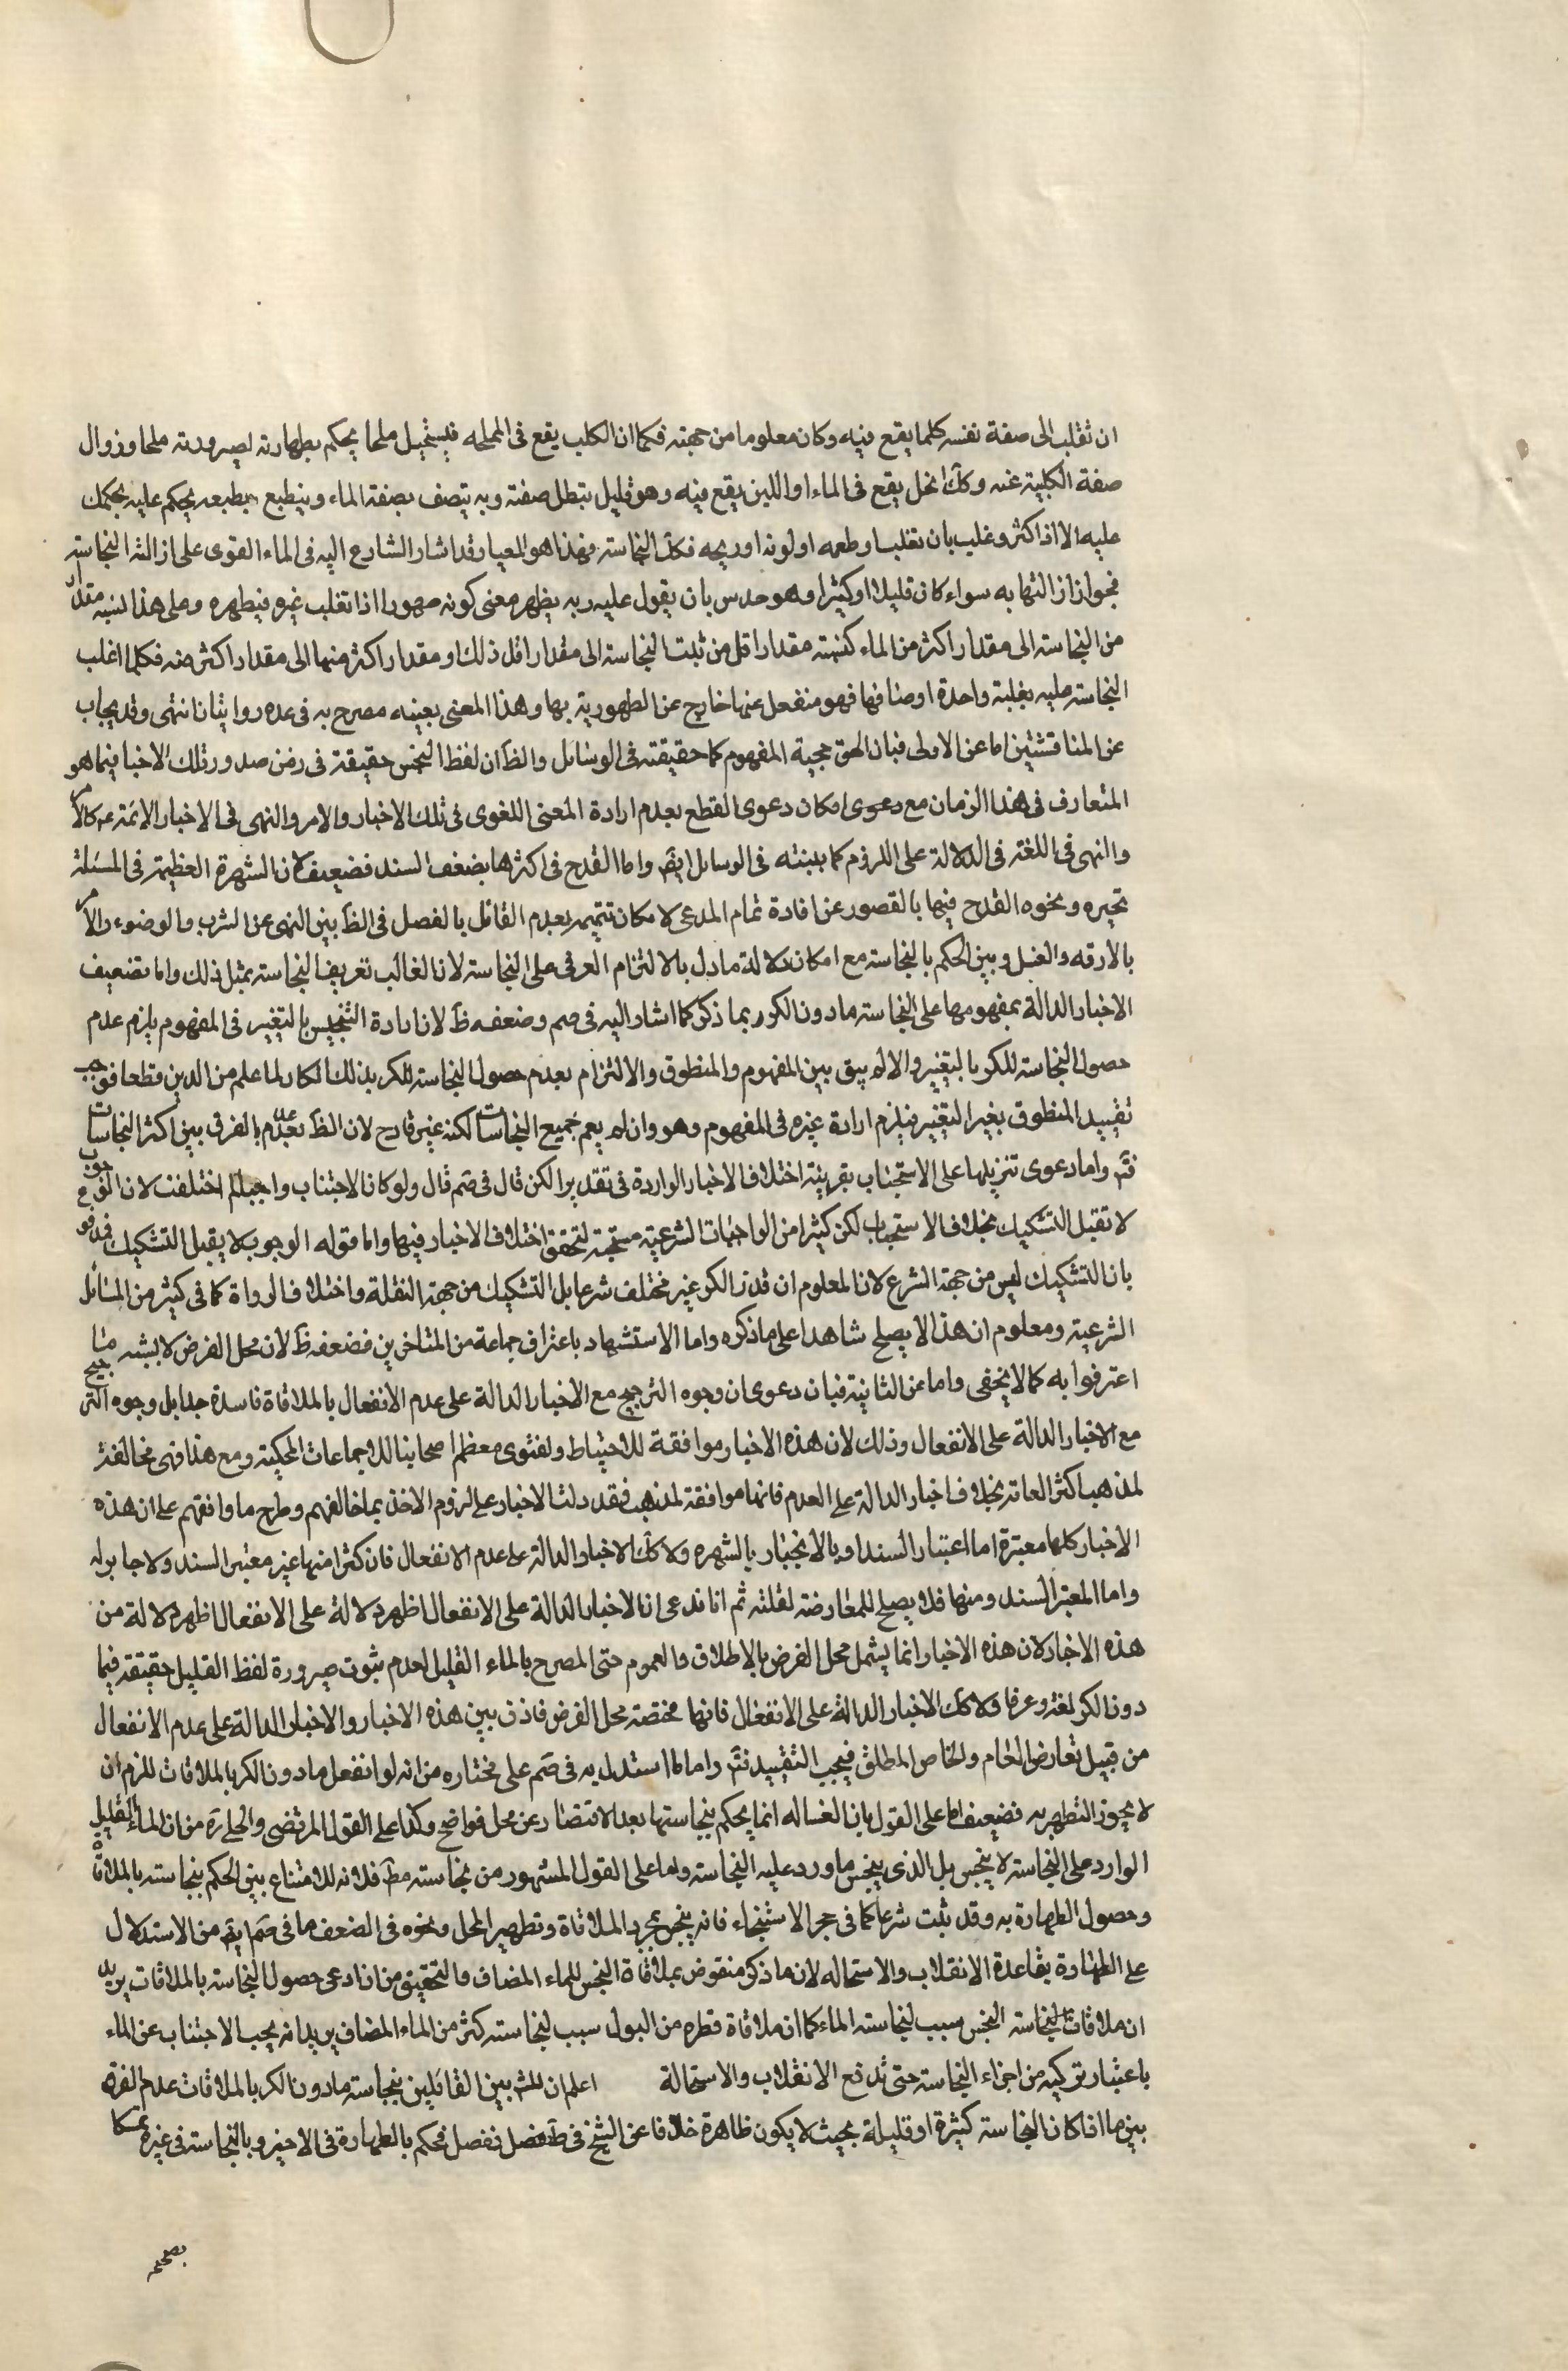 ان تقلب الى صفة نفسه كلما يقع فيه وكان معلوما من جهته فكما ان الكلب يقع فى المملحه فيستحيل ملحا يحكم بطهارته لصيرورته ملحا وزوال
صفة الكلبية عنه وكك الخل يقع فى الماء او اللبن يقع فيه وهو قليل بتطل صفته وبه يتصف بصفة الماء وينطبع بطبعه يحكم عليه بحكمك
عليه الا اذا كثر وغلب بان تغلب طعمه او لونه او ريحه فكك النجاسة فهذا هو المعيار قد اشار الشارع اليه فى الماء القوى على ازالته النجاسته
فجواز ازالتها به سواء كان قليلا او كثيرا وهو حدس بان يقول عليه ربه يظهر معنى كونه طهورا اذا تغلب غيره فيطهره وعلى هذا لنسبه مقدار
من النجاسته الى مقدار اكثر من الماء كنسبته مقدارا قل من ثبت النجاسته الى مقدار اقل ذلك او مقدار اكثر منها الى مقدار اكثر منه فكلما اغلب
النجاسته عليه بغلبة واحدة اوصافها فهو منفعل عنها خارج عن الطهورية بها وهذا المعنى بعينه مصرح به فى عده روايات انتهى وقد يجاب
عن المناقشتين اما عن الاولى فبان الحق حجية المفهوم كما حقيقته فى الوسائل والظ ان لفظ النجس حقيقة فى زمن صدور تلك الاخبار فيما هو
المتعارف فى هذا الزمان مع دعوى امكان دعوى القطع بعدم ارادة المعنى اللغوى فى تلك الاخبار والامر والنهى فى الاخبار الائمة ع كالامر
والنهى فى اللغة فى الدلالة على اللزوم كما بينته فى الوسائل ايض واما القدح فى اكثرها بضعف السند فضعيف لان الشهرة العظيمة فى المسئلة
تجبره ونحوه القدح فيها بالقصور عن افادة تمام المدعى لامكان تتميمه بعدم القائل بالفصل فى الظ بين النهى عن الشرب والوضوء والامر
بالارقه والغسل وبين الحكم بالنجاسته مع امكان دلالة ما دل بالالتزام العرفى على النجاسته لان الغالب تعريف النجاسته بمثل ذلك واما تضعيف
الاخبار الدالة بمفهومها على النجاسته ما دون الكر بما ذكر كما اشار اليه فى صم وضعفه ظ لان ارادة التنجيس بالتغير فى المفهوم يلزم عدم
حصول النجاسته للكر بالتغير والا لم يبق بين المفهوم والمنطوق والالتزام بعدم حصول النجاسته للكر بذلك انكار لما علم من الدين قطعا فوجب
تقييد المنطوق بغير التغير فيلزم ارادة غيره فى المفهوم وهو وان لم يعم جميع النجاسات لكنه غير قادح لان الظ عدم الفرق بين اكثر النجاسات
فتم واما دعوى تنزيلها على الاستحباب بقرينة اختلاف الاخبار الواردة فى تقدير الكر قال فى صم قال ولو كان الاجتناب واجبا لما اختلفت لان الوجوب
لا تقبل التشكيك بخلاف الاستحباب لكن كثيرا من الواجبات الشرعية مستحبة لتحقق اختلاف الاخبار فيها واما قوله الوجوب لا يقبل التشكيك فمدفوع
بان التشكيك ليس من جهة الشرع لان المعلوم ان قدر الكر غير مختلف شرعا بل التشكيك من جهة النقلة واختلاف الرواة كما فى كثير من المسائل
الشرعية ومعلوم ان هذا لا يصلح شاهدا على ما ذكره واما الاستشهاد باعتراف جماعة من المتاخرين فضعفه ظ لان محل الفرض لا يشبه ما
اعترفوا به كما لا يخفى واما عن الثانية فبان دعوى ان وجوه الترجيح مع الاخبار الدالة على عدم الانفعال بالملاقاة فاسدة جدا بل وجوه الترجيح
مع الاخبار الدالة على الانفعال وذلك لان هذه الاخبار موافقة للاحتياط ولفتوى معظم اصحابنا للاجماعات المحكية ومع هذا فهى مخالفة
لمذهب اكثر العامة بخلاف اخبار الدالة على العدم فانها موافقة لمذهب فقد دلت الاخبار على لزوم الاخذ بما خالفهم وطرح ما وافقهم على ان هذه
الاخبار كلها معتبرة اما اعتبار السند او بالانجبار بالشهره ولا كك الاخبار الدالة على عدم الانفعال فان كثرا منها غير معتبر السند ولا جابر له
واما المعتبر السند ومنها فلا يصلح للمعارضة لقلته ثم انا ندعى ان الاخبار الدالة على الانفعال اظهر دلالة على الانفعال اظهر دلالة من
هذه الاخبار لان هذه الاخبار انما يشمل محل الفرض بالاطلاق والعموم حتى المصرح بالماء القليل لعدم ثبوت صيرورة لفظ القليل حقيقة فيما
دون الكر لغة وعرفا ولا كك الاخبار الدالة على الانفعال فانها مختصة محل الفرض فاذن بين هذه الاخبار والاخبار الدالة على عدم الانفعال
من قبيل تعارض العام والخاص المطلق فيجب التقييد فتم واما ما استدل به فى صم على مختاره من انه لو انفعل ما دون الكر بالملاقات للزم ان
لا يجوز التطهر به فضعيف اما على القول بان الغساله انما يحكم بنجاستها بعد الانفصال عن محل فواضح وكذا على القول المرتضى والحلى ره من ان الماء القليل
الوارد على النجاسته لا ينجس بل الذى ينجس ما ورد عليه النجاسته واما على القول المشهور من نجاسته مط فلانه لا امتناع بين الحكم بنجاسته بالملاقاة
وحصول الطهارة به وقد ثبت شرعا كما فى حجر الاستنجاء فانه ينجس بمجرد الملاقاة وتطهير المحل ونحوه فى الضعف ما فى صم ايض من الاستدلال
على الطهارة بقاعدة الانقلاب والاستحاله لان ما ذكر منقوض بملاقاة النجس للماء المضاف والتحقيق من ان ادعى حصول النجاسته بالملاقات يريد
ان ملاقات النجاسته النجس سبب لنجاسته الماء كما ان ملاقاة قطره من البول سبب لنجاسته كثر من الماء المضاف يريد انه يجب الاجتناب عن الماء
باعتبار تركبه من اجزاء النجاسته حتى تدفع الانقلاب والاستحالة اعلم ان المشهور بين القائلين بنجاسته ما دون الكر بالملاقات عدم الفرق
بين ما اذا كان النجاسته كثيرة او قليلة بحيث لا يكون ظاهرة خلافا عن الشيخ فى ففصل فحكم بالطهارة فى الاخير وبالنجاسته فى غيره